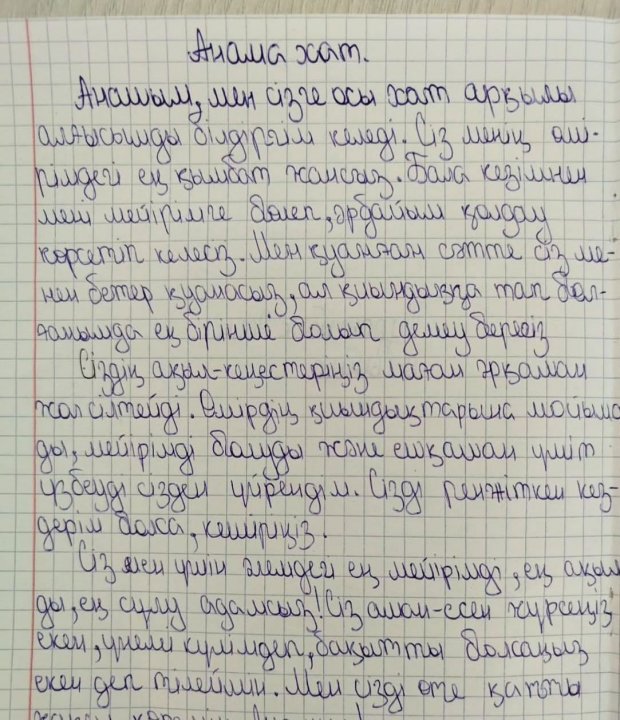 Анама хат.
Анашым, мен сізге осы хат арқылы
алғысымды білдіргім келеді. Сіз менің өмі-
рімдегі ең қымбат жансыз. Бала кезімнен
мені мейірімге бөлеп, әрдайым қолдау
көрсетіп келесіз. Мен қуанған сәтте сіз ме-
нен бетер қуанасыз, ал қиындыққа тап бол-
ғанымда ең бірінші болып демеу бересіз
Сіздің ақыл-кеңестеріңіз маған әрқашан
жол сілтейді. Өмірдің қиындықтарына мойыма
ды, мейірімді болуды және ешқашан үміт
үзбеуді сізден үйрендім. Сізді ренжіткен кез-
дерім болса, кешіріңіз.
Сіз мен үшін әлемдегі ең мейірімді, ең ақыл
ды, ең сұлу адамсыз! Сіз аман-есен жүрсеңіз
екен, үнемі күлімдеп, бақытты болсаңыз
екен деп тілеймін. Мен сізді өте қатты